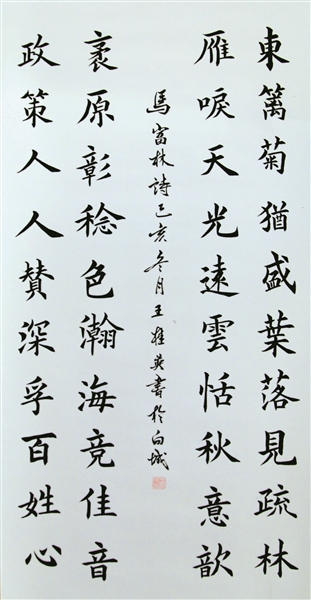 東篱菊猶盛葉落見疏林
雁唳天光遠雲恬秋意歆
袤原彰稔色瀚海竞佳音
政策人人賛深孚百姓心
馬富林詩己亥冬月王英書於白城